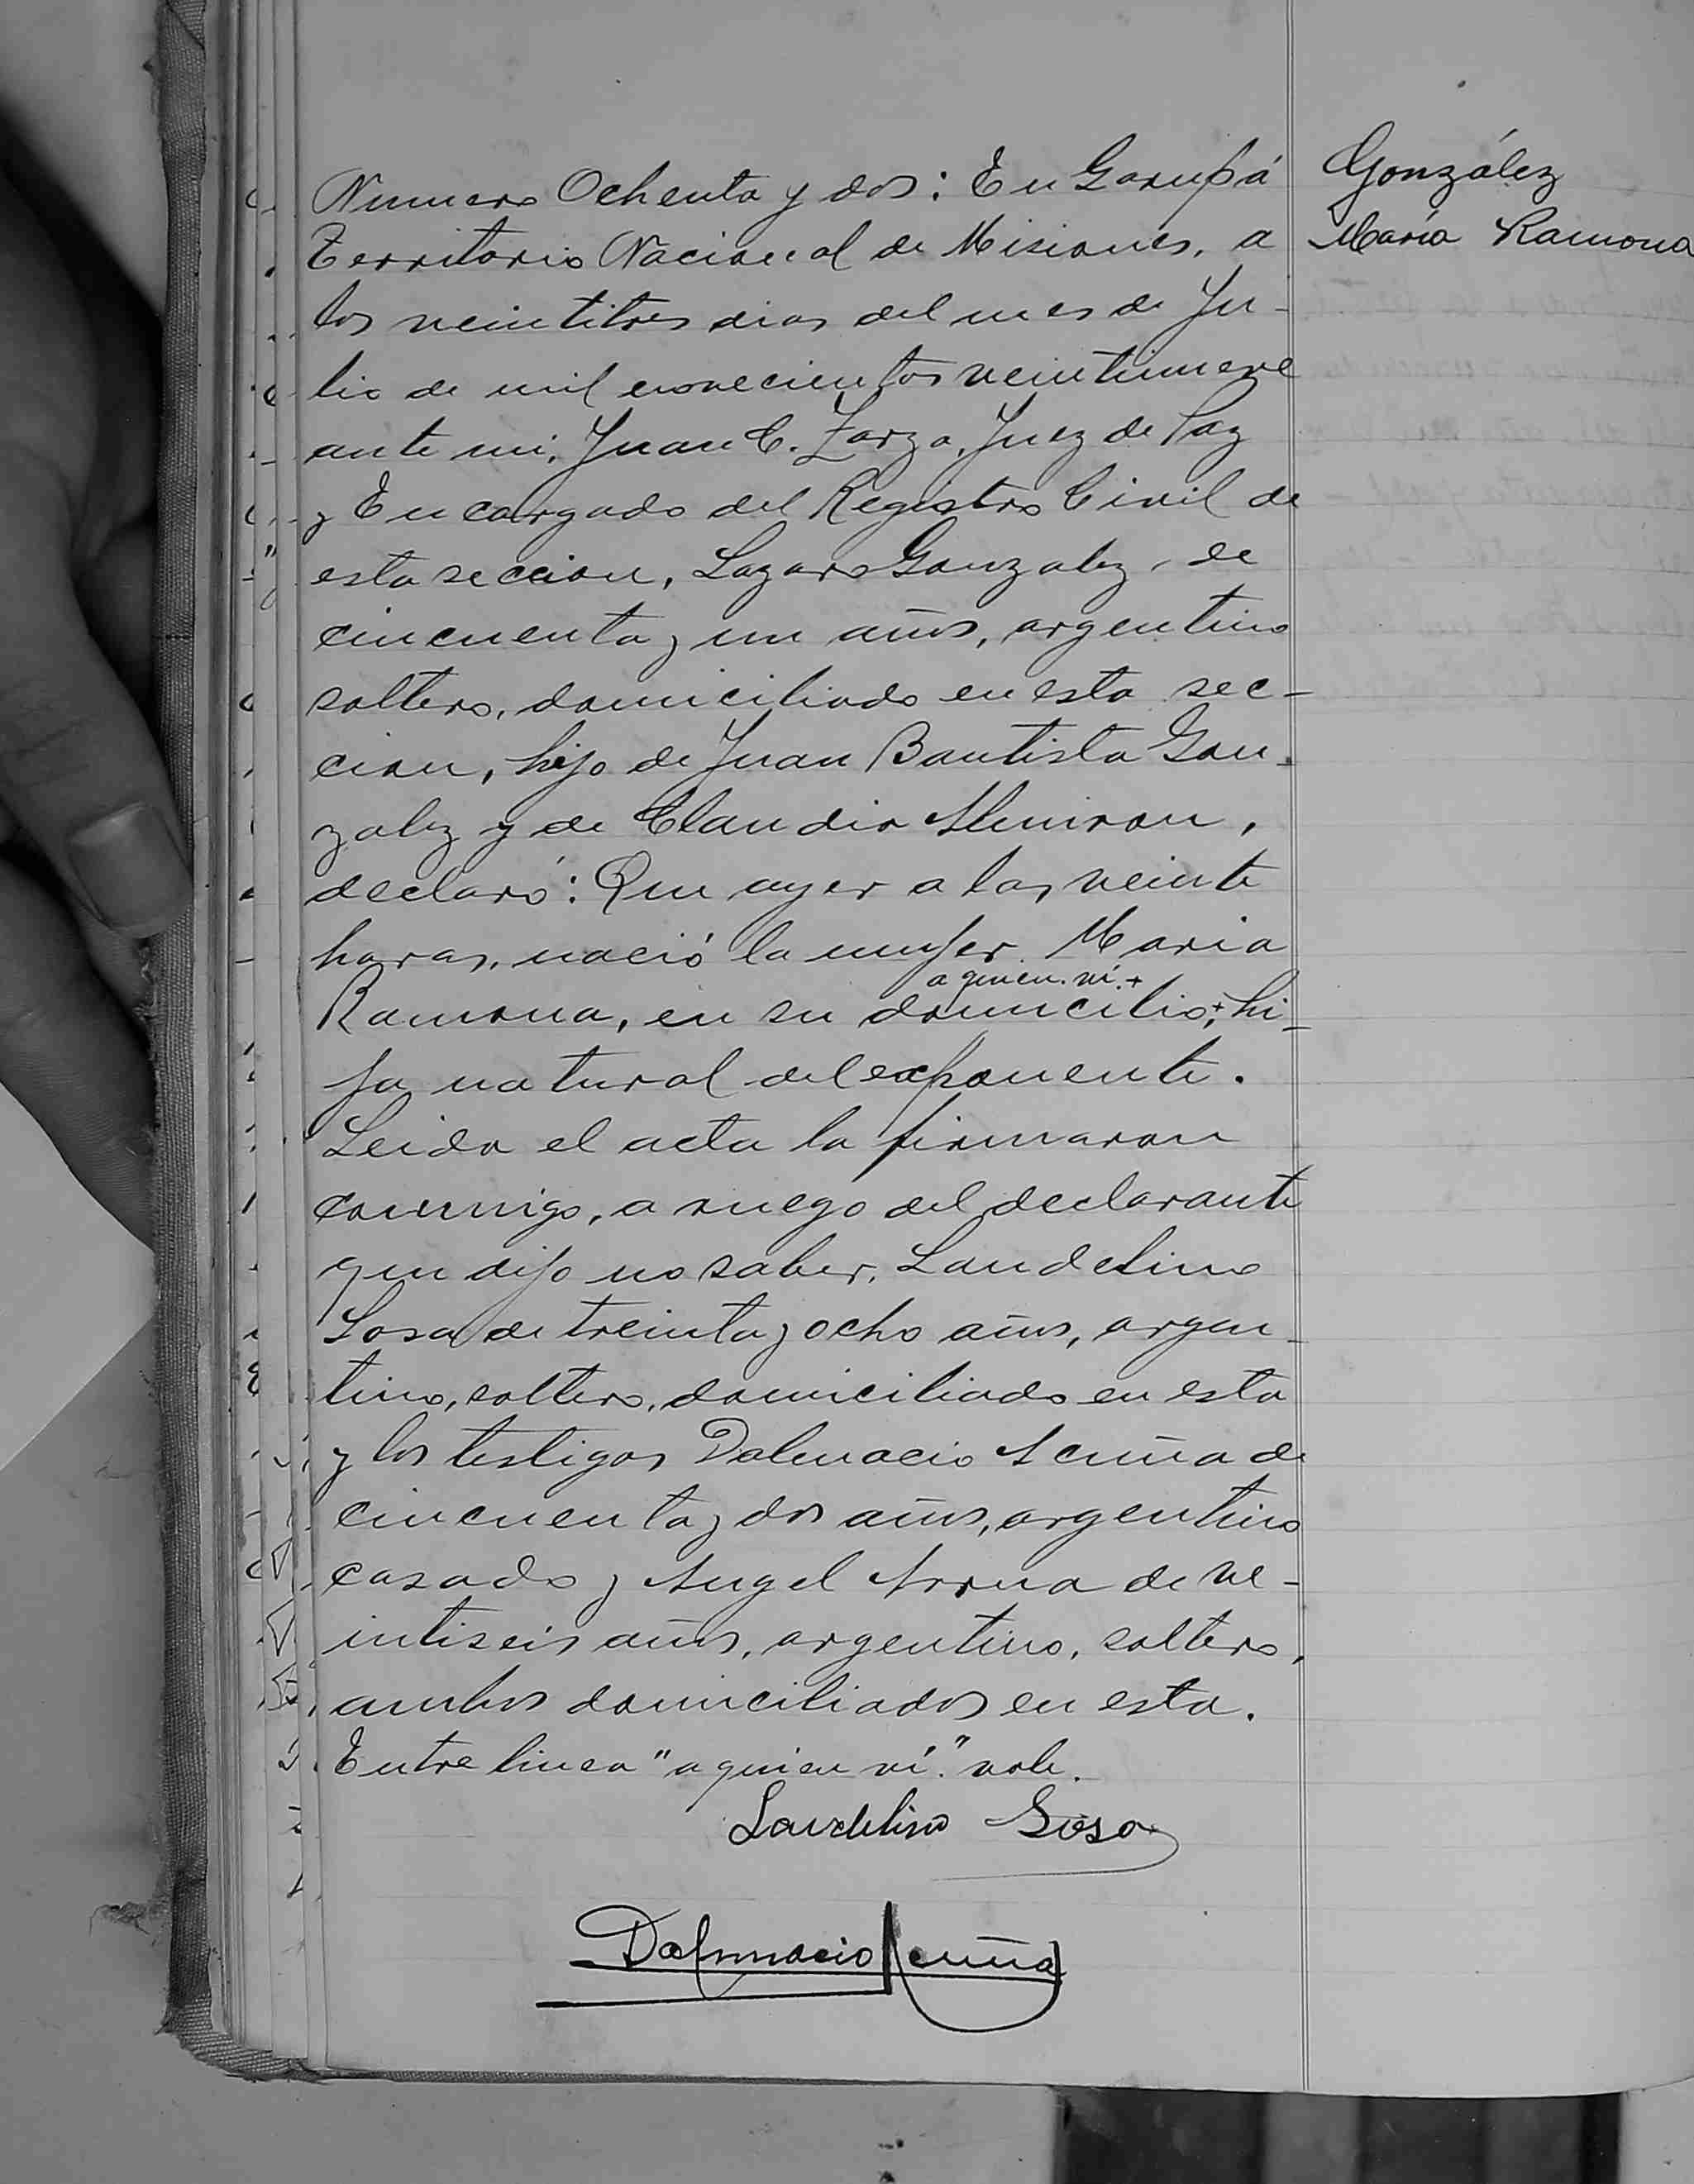 González
María Ramona
Numero Ochenta y dos: En Garupá
Territorio Nacional de Misiones, a
los veintitres dias del mes de Ju-
lio de mil novecientos veintinueve
ante mi, Juan C. Zarza, Juez de Paz
y Encargado del Registro Civil de
esta seccion, Lazaro Gonzalez, de
cincuenta y un años, argentino
soltero, domiciliado en esta sec-
cion, hijo de Juan Bautista Gon-
zalez y de Claudia Almiron,
declaró: Que ayer a las veinte
horas, nació la mujer Maria
a quien ví +
Ramona, en su domicilio +, hi-
ja natural del exponente.
Leida el acta la firmaron
conmigo, a ruego del declarante
que dijo no saber, Landelino
Sosa de treinta y ocho años, argen-
tino, soltero, domiciliado en esta
y los testigos Dalmacio Acuña de
cincuenta y dos años, argentino
casado y Angel Arrua de ve-
intiseis años, argentino, soltero,
ambos domiciliados en esta.
Entre linea "a quien ví." vale.
Landelino Sosa
Dalmacio Acuña